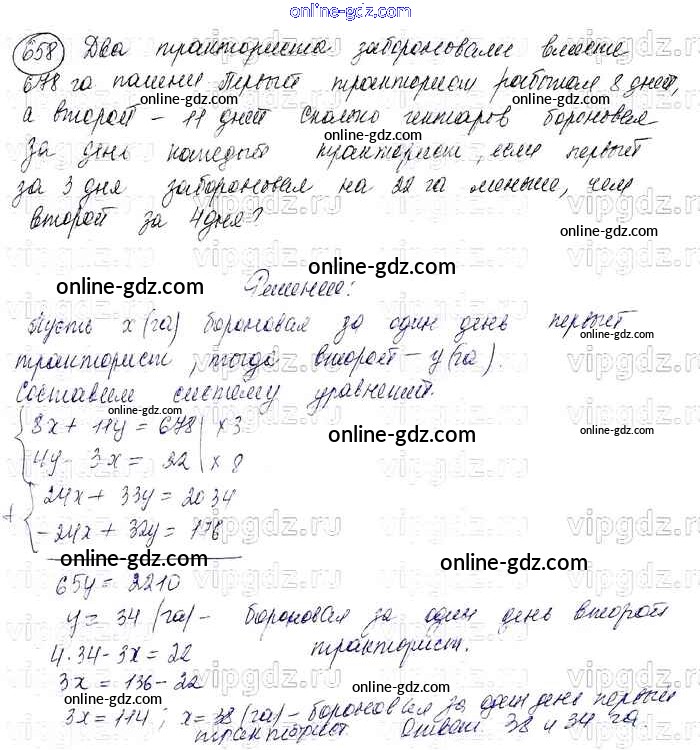 online-gdz.com
658 Два тракториста забороновали вместе
678 га пашни Первый тракторист работал 8 дней,
online-gdz.com online-gdz.com
а второй - 11 дней Сколько гектаров бороновал
online-gdz.com
за день каждый тракторист, если первый
за 3 дня забороновал на 22 га меньше, чем
vipgdz.ru vipgdz.ru vipgdz.ru
второй за 4 дня?
online-gdz.com
online-gdz.com Решение:
online-gdz.com
Пусть x (га) бороновал за один день первый
тракторист, тогда второй - y (га).
online-gdz.com
Составим систему уравнений.
online-gdz.com
8x + 11y = 678 | x 3
online-gdz.com
4y - 3x = 22 | x 8
24x + 33y = 2034
+
- 24x + 32y = 176
online-gdz.com online-gdz.com
65y = 2210
y = 34 (га) - бороновал за один день второй
тракторист.
4·34-3x = 22
online-gdz.com online-gdz.com
3x = 136 - 22
online-gdz.com
3x = 114; x = 38 (га) - бороновал за один день первый
тракторист. Ответ: 38 и 34 га.
online-gdz.com